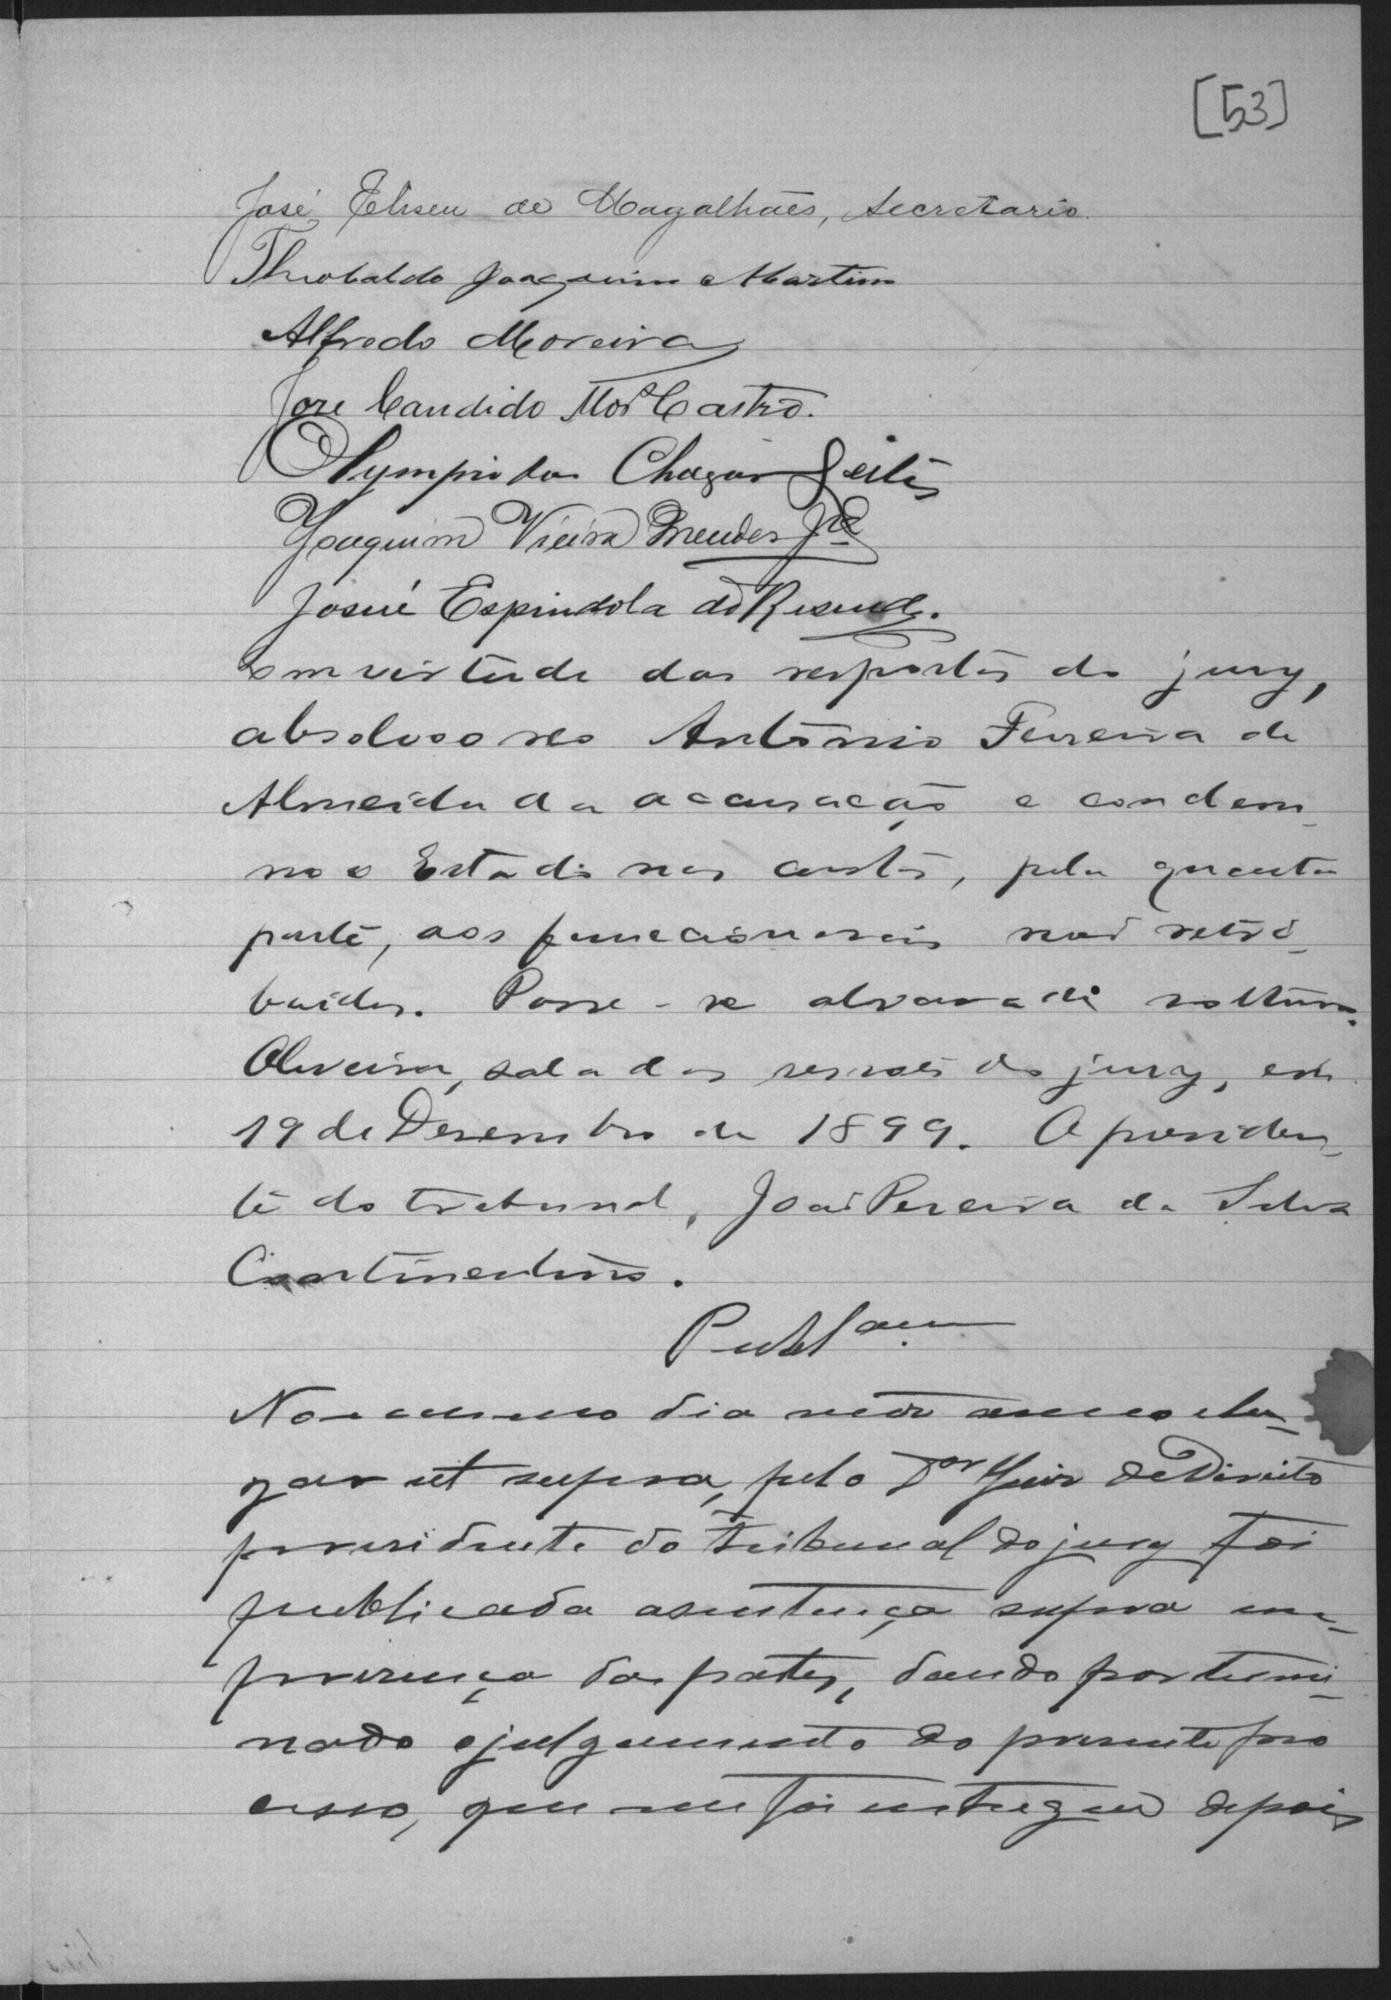 [53]
José Eliseu de Magalhães, Secretario.
Theobaldo Joaquim Martins
Alfredo Moreira
Jose Candido Mor.ª Castro.
Olympio das Chagas Leitão
Joaquim Vieira Mendes J.or
Josué Espindola de Resende.
Em virtude das respostas do jury,
absolvo o reo Antonio Ferreira de
Almeida da accusação e condem-
no o Estado nas custas, pela quarta
parte, aos funccionarios não retri-
buidos. Passe-se alvará de soltura.
Oliveira, sala das sessões do jury, em
19 de Desembro de 1899. O presiden-
te do tribunal, João Pereira da Silva
Continentino.
Publ.am
No mesmo dia mez anno e lu-
gar ut supra, pelo D.or Juiz de Direito
presidente do tribunal do jury foi
publicada a sentença supra em
presença das partes, dando por termi-
nado o julgamento do presente pro
cesso, que me foi entregue depois